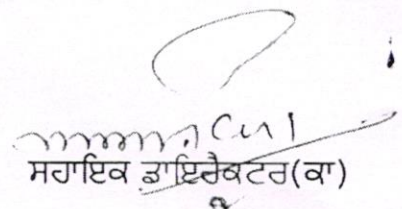 ਸਹਾਇਕ ਡਾਇਰੈਕਟਰ(ਕਾ)